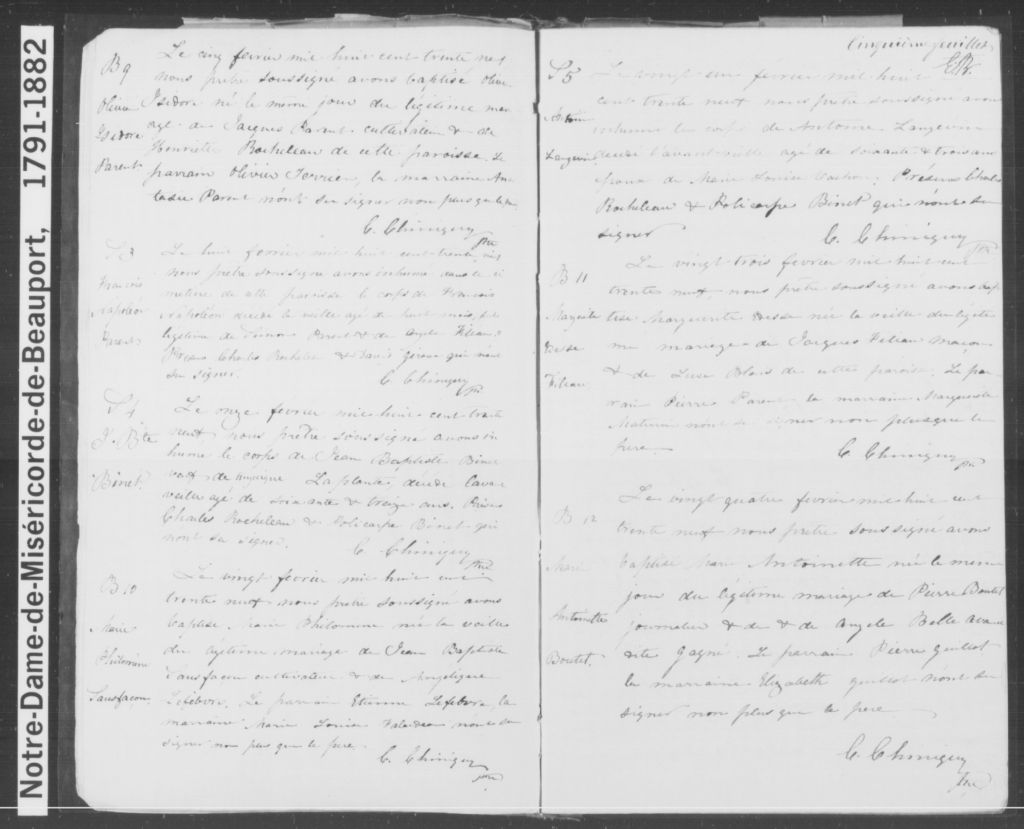 Notre-Dame-de-Miséricorde-de-Beauport, 1791-1882
B9
Olivier
Isidore
Parent
Le cinq fevrier mil huit cent trente neuf
nous prêtre soussigné avons baptisé Olivier
Isidore né le meme jour du legitime mari
age de Jacques Parent cultivateur & de
Henriette Rocheleau de cette paroisse. Le
parrain Olivier la marraine
Parent n'ont su signer non plus que le
C. Chiniquy
ptre
S3
Francois
Napoléon
Parent
Le huit fevrier mil huit cent trente neuf
nous prêtre soussigné avons inhumé dans le ci
metiere de cette paroisse le corps de Francois
Napoléon decedé la veille agé de huit mois, fils
legitime de Parent & de Angele Filteau
Charles Rocheleau & Giroux qui n'ont
su signer.
C. Chiniquy
ptre
S4
J. Bte
Binet.
Le onze fevrier mil huit cent trente
neuf, nous prêtre soussigné avons in
humé le corps de Jean Baptiste Binet
de Laplante, decédé l'avant
veille agé de soixante & treize ans. Présens
Charles Rocheleau & Policarpe Binet qui
n'ont su signer.
C. Chiniquy
ptre
B10
Marie
Philomène
Sansfaçon
Le vingt fevrier mil huit cent
trente neuf nous prêtre soussigné avons
baptisé Marie Philomene née la veille
du légitime mariage de Jean Baptiste
Sansfaçon cultivateur & de Angelique
Lefebvre. Le parrain Etienne Lefebvre la
marraine Marie Louise n'ont su
signer non plus que le pere.
C. Chiniquy
ptre
Cinquième feuillet,
S5
Antoine
Langevin
Le vingt un février mil huit
cent trente neuf nous prêtre soussigné avons
inhumé le corps de Antoine Langevin
decedé l'avant veille agé de soixante & trois ans
époux de Marie Louise. Présens Charles
Rocheleau & Policarpe Binet qui n'ont su
signer
C. Chiniquy
ptre
B11
Marguerite
Filteau
Le vingt trois fevrier mil huit cent
trente neuf, nous prêtre soussigné avons bap
tisé Marguerite née la veille du légiti
me mariage de Jacques Filteau maçon
& de Luce Blais de cette paroisse. Le par
rain Pierre Parent la marraine Marguerite
n'ont su signer non plus que le
pere.
C Chiniquy
ptre
B 12
Marie
Antoinette
Boutet.
Le vingt quatre fevrier mil huit cent
trente neuf nous prêtre soussigné avons
baptisé Marie Antoinette née le meme
jour du légitime mariage de Pierre Boutet
journalier & de & de Angele Belleavance
dite Gagné. Le parrain Pierre Guillot
la marraine Elizabeth Guillot n'ont su
signer non plus que le pere
C. Chiniquy
ptre